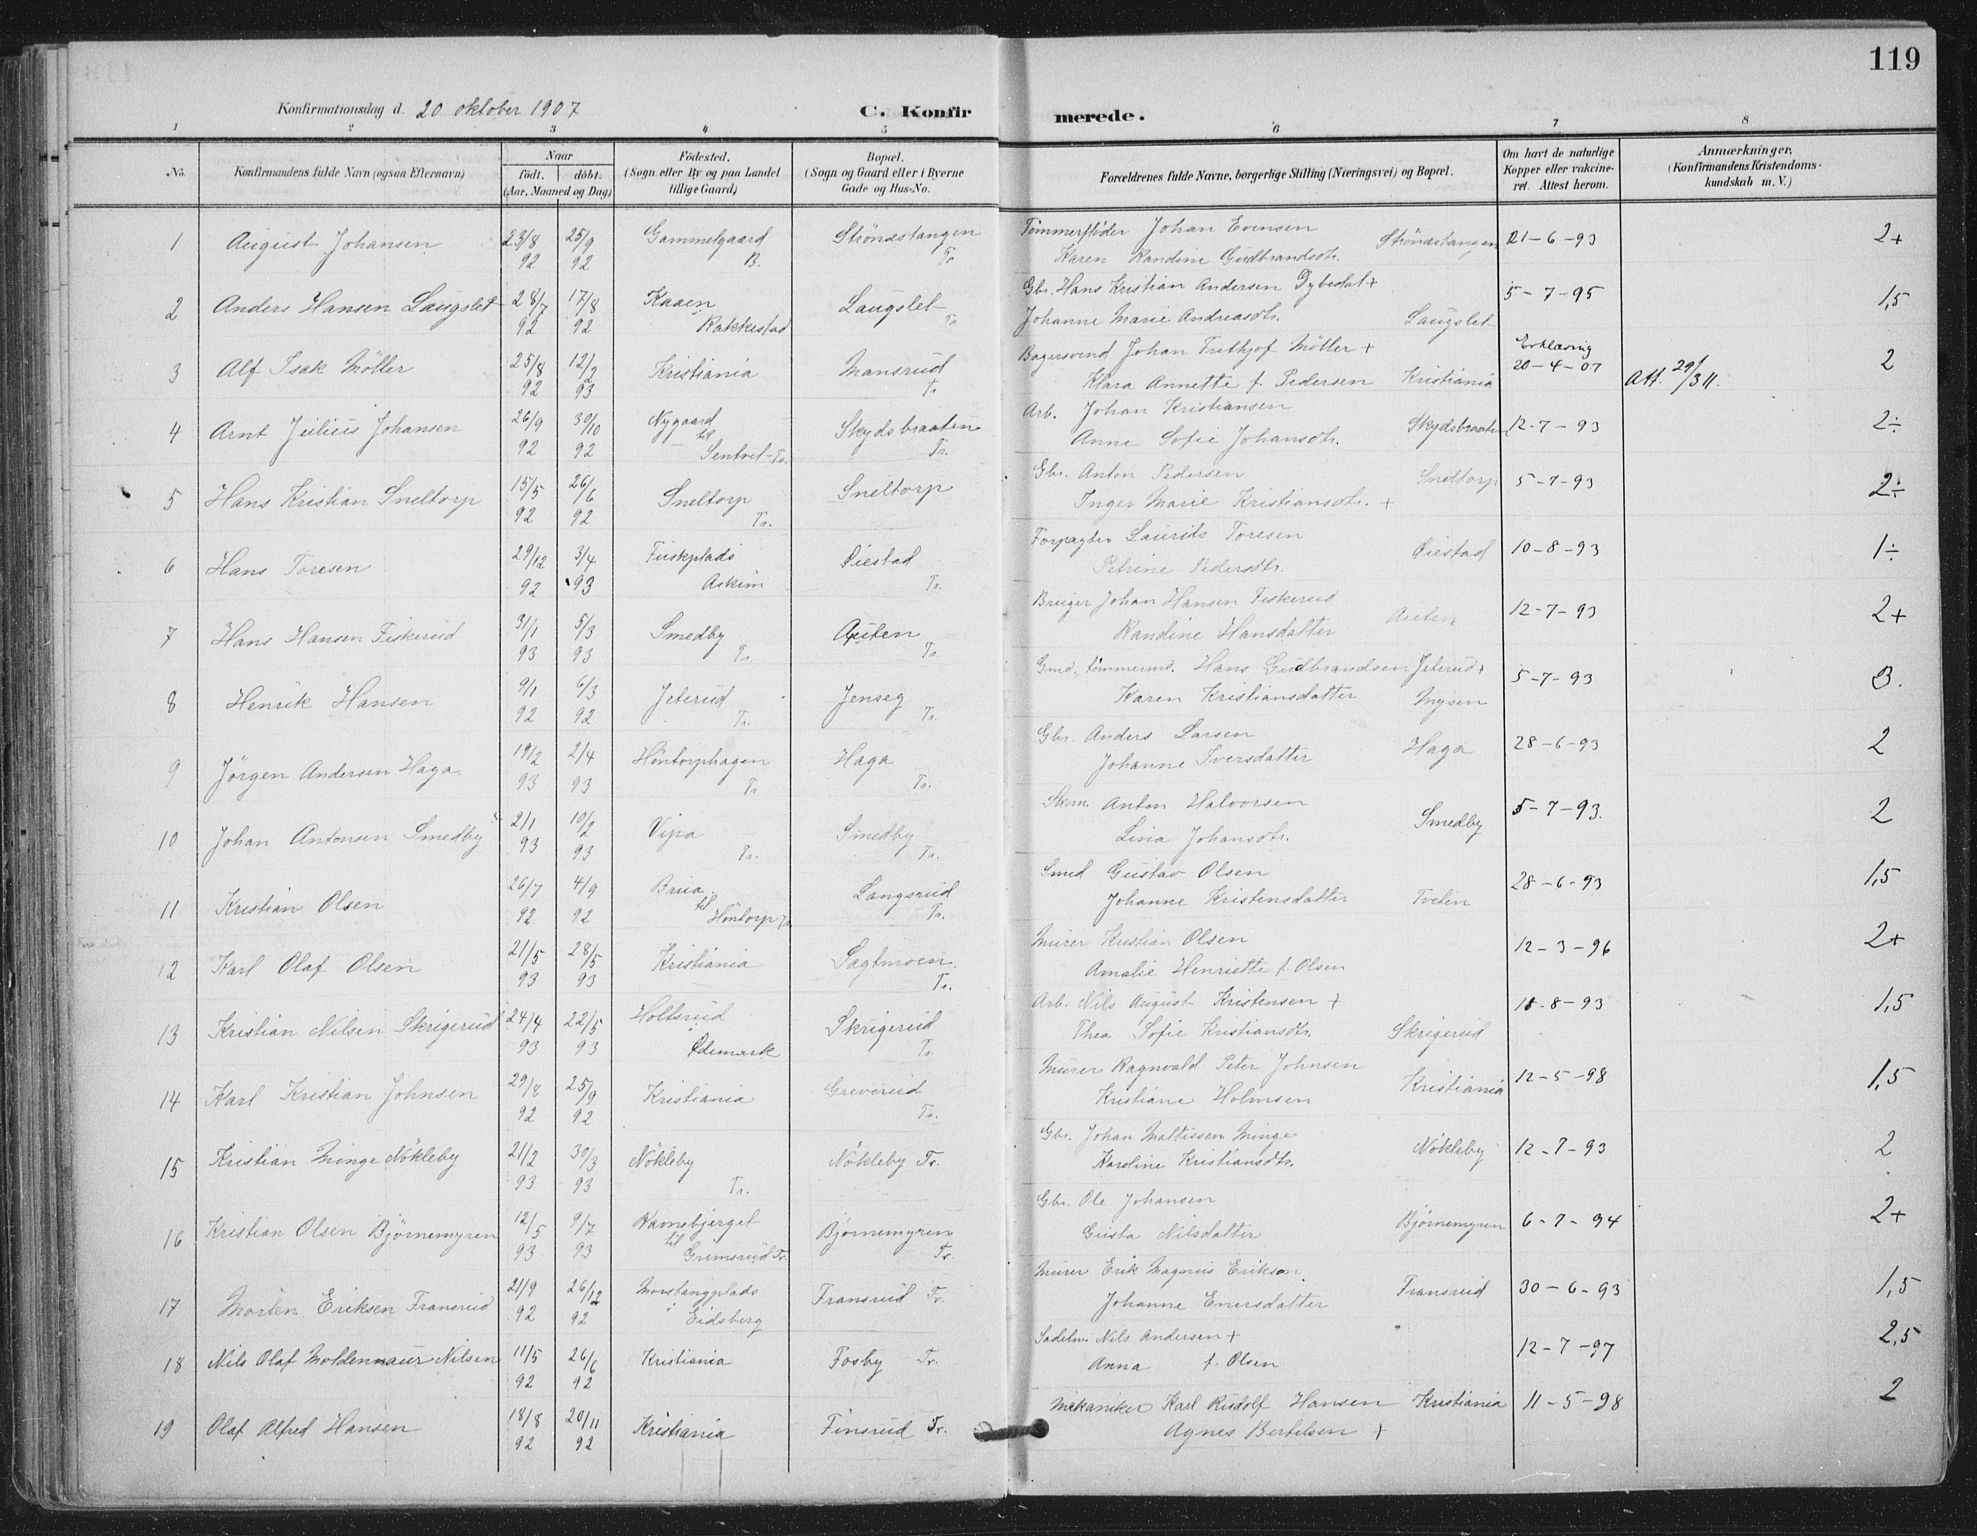 119
Konfirmationsdag d. 20 oktober 1907
C. Konfirmerede.
1 2 3 4 5 6 7 8
No. Konfirmandens fulde Navn (ogsaa Efternavn) Naar født. døbt. (Aar, Maaned og Dag) Fødested. (Sogn eller By og paa Landet tillige Gaard) Bopæl. (Sogn og Gaard eller i Byerne Gade og Hus-No. Forældrenes fulde Navne, borgerlige Stilling (Næringsvei) og Bopæl. Om havt de naturlige Kopper eller vaccineret. Attest herom. Anmærkninger. (Konfirmandens Kristendomskundskab m. V.)
1 August Johansen 23/8 92 25/9 92 Gammelgaard B. Strönæstangen Tr. Tömmerfløder Johan Evensen Karen Randine Gudbrandsdtr. Strönæstangen 21-6-93 2+
2 Anders Hansen Laugslet 28/7 92 17/8 92 Kaaen Rakkestad Laugslet Tr. Gbr. Hans Kristian Andersen Dybedal + Johanne Marie Andreasdtr. Laugslet 5-7-95 1,5
3 Alf Isak Möller 25/8 92 12/2 93 Kristiania Mansrud Tr. Bagersvend Johan Frithjof Möller + Klara Annette f. Pedersen Kristiania Erklæring 20-4-07 Att. 29/3 11. 2
4 Arnt Julius Johansen 26/9 92 30/10 92 Nygaard til Sentvet Tr. Skydsbraaten Tr. Arb. Johan Kristiansen Anne Sofie Johansdtr. Skydsbraaten 12-7-93 2÷
5 Hans Kristian Sneltorp 15/5 92 26/6 92 Sneltorp Tr. Sneltorp Gbr. Anton Pedersen Inger Marie Kristiansdtr. + Sneltorp 5-7-93 2÷
6 Hans Toresen 29/12 92 3/4 93 Fuskplads Askim Øiestad Tr. Forpagter Laurits Toresen Petrine Pedersdtr. Øiestad 10-8-93 1÷
7 Hans Hansen Fiskerud 31/1 93 5/3 93 Smedby Tr. Auten Tr. Bruger Johan Hansen Fiskerud Randine Hansdatter Auten 12-7-93 2+
8 Henrik Hansen 9/1 92 6/3 92 Jeterud Tr. Jenseg Tr. Gmd., tömmerm. Hans Gudbrandsen Jeterud + Karen Kristiansdatter Mysen 5-7-93 3.
9 Jörgen Andersen Haga 19/2 93 2/4 93 Höntorphagen Tr. Haga Tr. Gbr. Anders Larsen Johanne Iversdatter Haga 28-6-93 2
10 Johan Antonsen Smedby 2/1 93 10/2 93 Vipa Tr. Smedby Tr. Skom. Anton Halvorsen Lina Johansdtr. Smedby 5-7-93. 2
11 Kristian Olsen 26/7 92 4/9 92 Brua til Höntorp Tr. Langsrud Tr. Smed Gustav Olsen Johanne Kristensdatter Tveten 28-6-93 1,5
12 Karl Olaf Olsen 21/5 93 28/5 93 Kristiania Sagtmoen Tr. Murer Kristian Olsen Amalie Henriette f. Olsen 12-3-96 2+
13 Kristian Nilsen Skrigerud 24/4 93 22/5 93 Holtsrud Ødemark Skrigerud Tr. Arb. Nils August Kristensen + Thea Sofie Kristiansdtr. Skrigerud 11-8-93 1,5
14 Karl Kristian Johnsen 29/8 92 25/9 92 Kristiania Greverud Tr. Murer Ragnvald Peter Johnsen Kristiane Holmsen Kristiania 12-5-98 1,5
15 Kristian Minge Nökleby 21/2 93 30/3 93 Nökleby Tr. Nökleby Tr. Gbr. Johan Mattissen Minge Karoline Kristiansdtr. Nökleby 12-7-93 2
16 Kristian Olsen Björnemyren 12/5 93 9/7 93 Ravnebjerget til Grimsrud Tr. Björnemyren Tr. Gbr. Ole Johansen Gusta Nilsdatter Björnemyren 6-7-94 2+
17 Morten Eriksen Fransrud 21/9 92 26/12 92 Morstangplads i Eidsberg Fransrud Tr. Murer Erik Magnus Erikson Johanne Enersdatter Fransrud 30-6-93 1,5
18 Nils Olaf Moldennaur Nilsen 11/5 92 26/6 92 Kristiania Fosby Tr. Sadelm. Nils Andersen + Anna f. Olsen 12-7-97 2,5
19 Olaf Alfred Hansen 18/8 92 20/11 92 Kristiania Finsrud Tr. Mekaniker Karl Rudolf Hansen Agnes Bertelsen + Kristiania 11-5-98 2